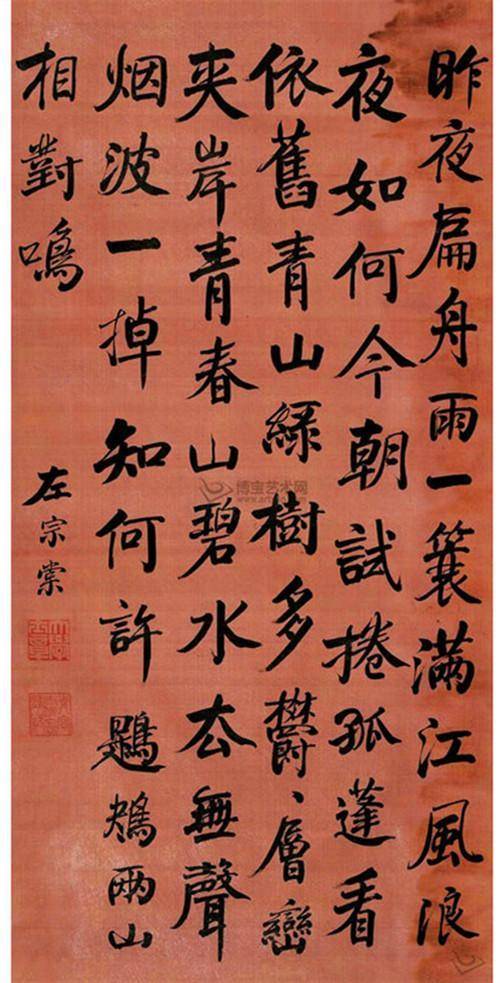 昨夜扁舟雨一簑满江風浪
夜如何今朝試捲孤蓬看
依舊青山緑樹多鬱、層巒
夾岸青春山碧水去無聲
烟波一掉知何許鶗鴂兩山
相對鳴
左宗棠
博宝艺术网